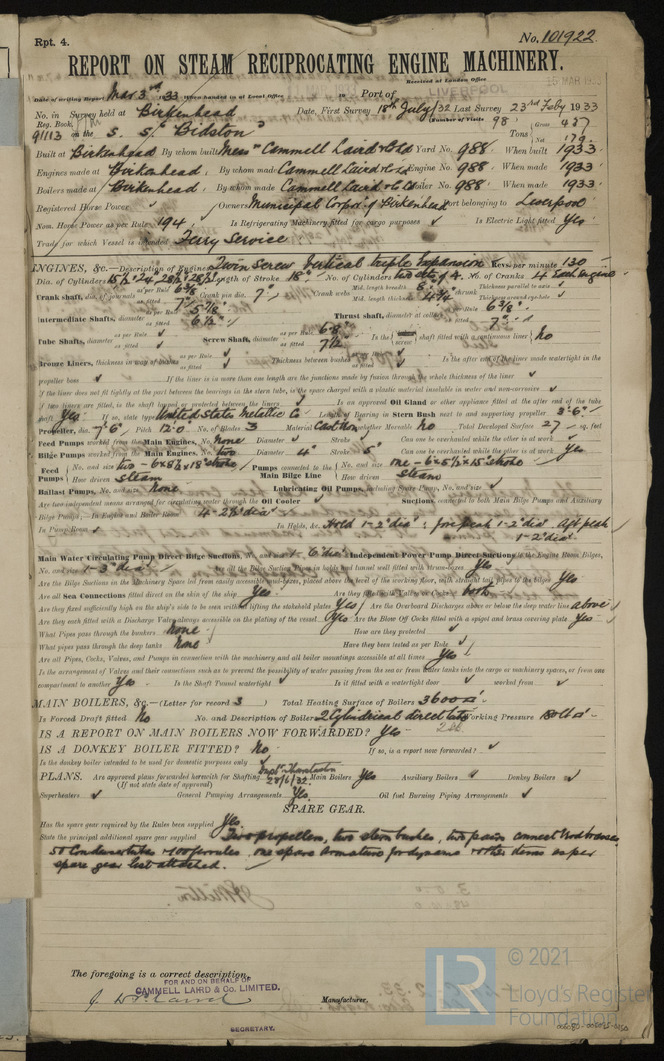 Rpt. 4. No. 101922
REPORT ON STEAM RECIPROCATING ENGINE MACHINERY.
Received at London Office
Date of writing Report Mar 3rd 33 When handed in at Local Office Port of LIVERPOOL
No. in Survey held at Birkenhead Date, First Survey 18th July/32 Last Survey 23rd Feby 1933
Reg. Book. (Number of Visits 98)
91113 on the S. S. "Bidston" Tons Gross 487 Net 179
Built at Birkenhead By whom built Messrs Cammell Laird & Co Ld Yard No. 988 When built 1933
Engines made at Birkenhead By whom made Cammell Laird & Co Ld Engine No. 988 When made 1933
Boilers made at Birkenhead By whom made Cammell Laird & Co Ld Boiler No. 988 When made 1933
Registered Horse Power Owners Municipal Corpor. of Birkenhead Port belonging to Liverpool
Nom. Horse Power as per Rule 194 Is Refrigerating Machinery fitted for cargo purposes Is Electric Light fitted Yes
Trade for which Vessel is intended Ferry Service
ENGINES, &c.—Description of Engines Twin Screw Vertical triple Expansion Revs. per minute 130
Dia. of Cylinders 15½" 24" 28½" 28½" Length of Stroke 18" No. of Cylinders two sets of 4 No. of Cranks 4 Each Engine
Crank shaft, dia. of journals as per Rule 6 7/8 as fitted 7" Crank pin dia. 7" Crank webs Mid. length breadth 8" Mid. length thickness 4 3/4" Thickness parallel to axis Thickness around eye-hole
Intermediate Shafts, diameter as per Rule as fitted 6½" Thrust shaft, diameter at collars as per Rule 6 3/8" as fitted 7"
Tube Shafts, diameter as per Rule as fitted Screw Shaft, diameter as per Rule 6.8 as fitted 7½ Is the screw shaft fitted with a continuous liner No
Bronze Liners, thickness in way of bushes as per Rule as fitted Thickness between bushes as per Rule as fitted Is the after end of the liner made watertight in the
propeller boss If the liner is in more than one length are the junctions made by fusion through the whole thickness of the liner
If the liner does not fit tightly at the part between the bearings in the stern tube, is the space charged with a plastic material insoluble in water and non-corrosive
If two liners are fitted, is the shaft lapped or protected between the liners Is an approved Oil Gland or other appliance fitted at the after end of the tube
shaft Yes If so, state type United States Metallic Co Length of Bearing in Stern Bush next to and supporting propeller 3'-6"
Propeller, dia. 7'-6" Pitch 12'-0" No. of Blades 3 Material Cast Iron whether Moveable No Total Developed Surface 27 sq. feet
Feed Pumps worked from the Main Engines, No. None Diameter Stroke Can one be overhauled while the other is at work
Bilge Pumps worked from the Main Engines, No. two Diameter 4" Stroke 5" Can one be overhauled while the other is at work Yes
Feed Pumps No. and size two – 6 x 8½ x 18" stroke How driven steam Pumps connected to the Main Bilge Line No. and size one – 6 x 5½ x 15" stroke How driven steam
Ballast Pumps, No. and size None Lubricating Oil Pumps, including Spare Pump, No. and size
Are two independent means arranged for circulating water through the Oil Cooler Suctions, connected to both Main Bilge Pumps and Auxiliary
Bilge Pumps:—In Engine and Boiler Room 4 – 2½" dia
In Pump Room In Holds, &c. Hold 1-2" dia : forepeak 1-2" dia Aft peak
1-2" dia
Main Water Circulating Pump Direct Bilge Suctions, No. and size 1 – 6" dia Independent Power Pump Direct Suctions to the Engine Room Bilges,
No. and size 1 – 3" dia Are all the Bilge Suction Pipes in holds and tunnel well fitted with strum-boxes Yes
Are the Bilge Suctions in the Machinery Space led from easily accessible mud-boxes, placed above the level of the working floor, with straight tail pipes to the bilges Yes
Are all Sea Connections fitted direct on the skin of the ship Yes Are they fitted with Valves or Cocks both
Are they fixed sufficiently high on the ship's side to be seen without lifting the stokehold plates Yes Are the Overboard Discharges above or below the deep water line above
Are they each fitted with a Discharge Valve always accessible on the plating of the vessel Yes Are the Blow Off Cocks fitted with a spigot and brass covering plate Yes
What Pipes pass through the bunkers None How are they protected
What pipes pass through the deep tanks None Have they been tested as per Rule
Are all Pipes, Cocks, Valves, and Pumps in connection with the machinery and all boiler mountings accessible at all times Yes
Is the arrangement of Valves and their connections such as to prevent the possibility of water passing from the sea or from water tanks into the cargo or machinery spaces, or from one
compartment to another Yes Is the Shaft Tunnel watertight Is it fitted with a watertight door worked from
MAIN BOILERS, &c.—(Letter for record S) Total Heating Surface of Boilers 3600 sq'
Is Forced Draft fitted No No. and Description of Boilers 2 Cylindrical direct tube Working Pressure 180 lbs
IS A REPORT ON MAIN BOILERS NOW FORWARDED? Yes
IS A DONKEY BOILER FITTED? No If so, is a report now forwarded?
Is the donkey boiler intended to be used for domestic purposes only
PLANS. Are approved plans forwarded herewith for Shafting 28/6/32 Main Boilers Yes Auxiliary Boilers Donkey Boilers
(If not state date of approval)
Superheaters General Pumping Arrangements Yes Oil fuel Burning Piping Arrangements
SPARE GEAR.
Has the spare gear required by the Rules been supplied Yes
State the principal additional spare gear supplied Two propellers, two stern bushes, two pairs connect rod brasses
50 Condenser tubes + 100 ferrules, one spare armature for dynamo + other items as per
spare gear list attached.
The foregoing is a correct description,
FOR AND ON BEHALF OF
CAMMELL LAIRD & Co. LIMITED.
Manufacturer.
SECRETARY.
© 2021
LR
Lloyd's Register
Foundation